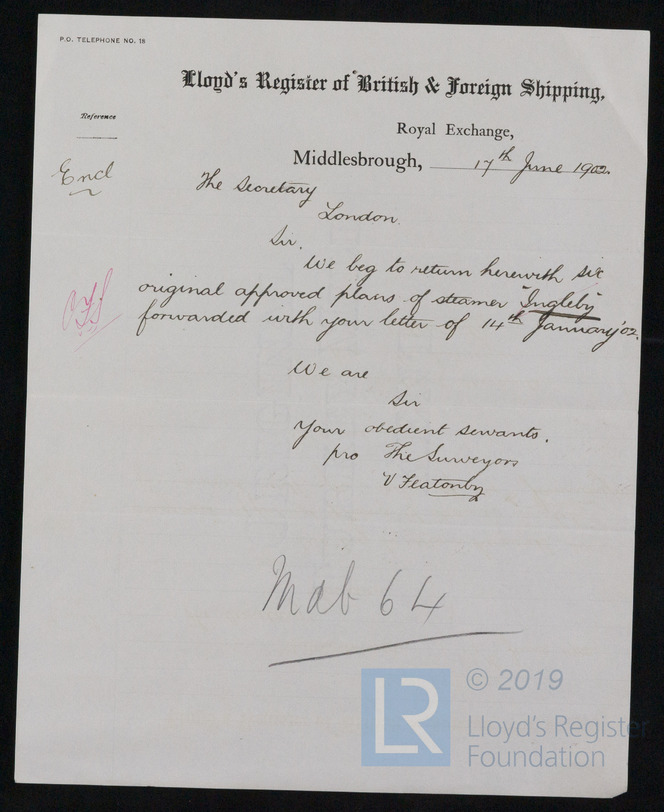 P.O. TELEPHONE NO. 18
Lloyd's Register of British & Foreign Shipping,
Reference
Royal Exchange,
Middlesbrough, 17th June 1902.
Encl
The Secretary
London.
Sir,
We beg to return herewith six
original approved plans of steamer "Ingleby"
forwarded with your letter of 14th January '02.
We are
Sir
Your obedient servants.
pro The Surveyors
V Featonby
Mdb 64
© 2019
LR
Lloyd's Register
Foundation